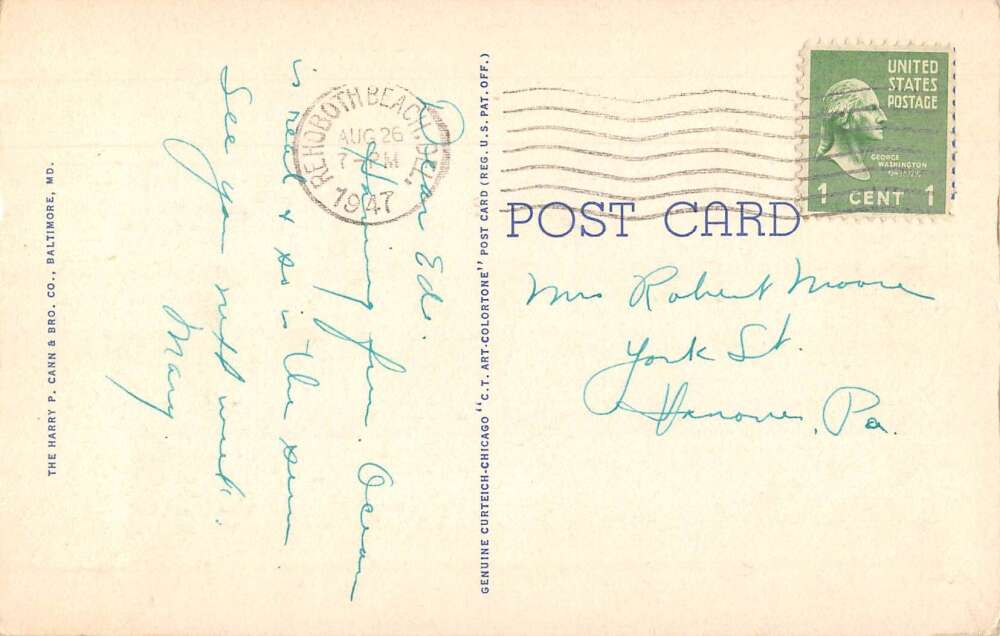 THE HARRY P. CANN & BRO. CO., BALTIMORE, MD.
Dear Ed.
Having fun. Ocean
is neat & so is the sun
See you next week.
Mary.
REHOBOTH BEACH, DEL.
AUG 26
7-PM
1947
GENUINE CURTEICH-CHICAGO "C.T. ART-COLORTONE" POST CARD (REG. U.S. PAT. OFF.)
UNITED
STATES
POSTAGE
GEORGE
WASHINGTON
1 CENT 1
POST CARD
Mrs Robert Moore
York St.
Hanover, Pa.